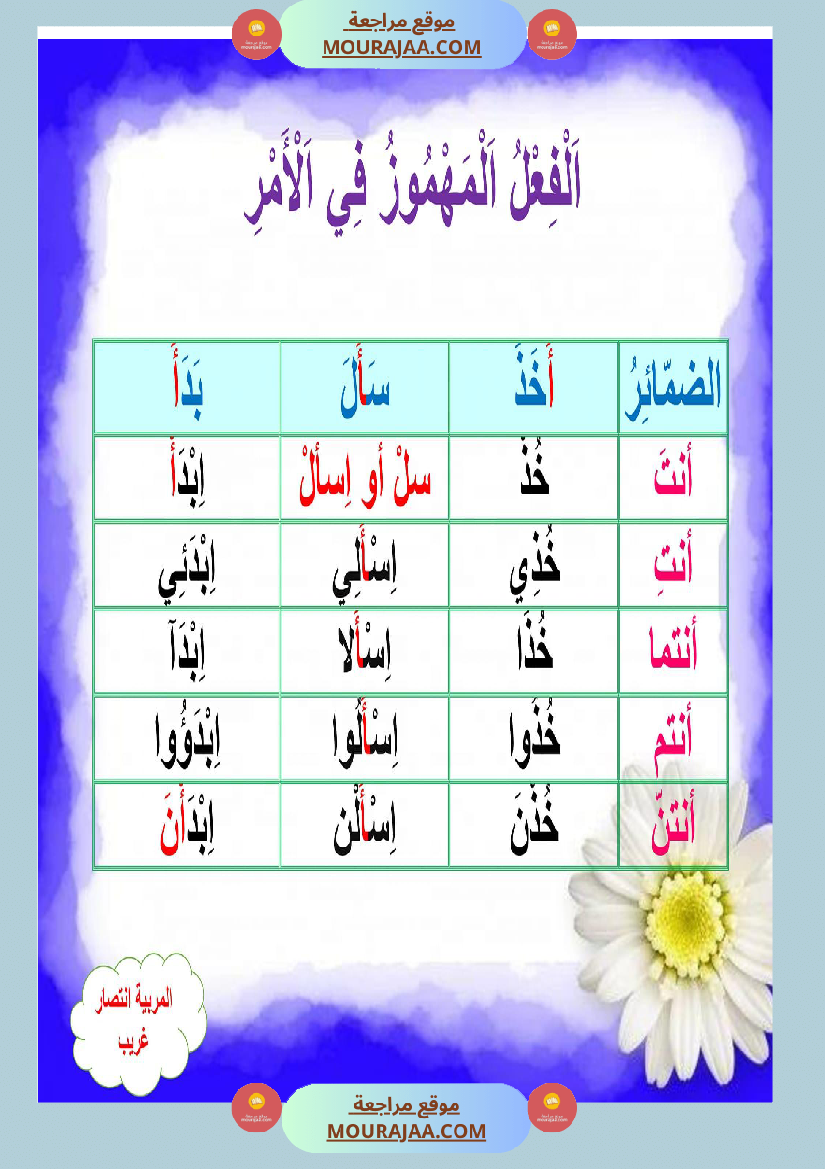 موقع مراجعة
MOURAJAA.COM
اَلْفِعْلُ اَلْمَهْمُوزُ فِي اَلْأَمْرِ
الضمّائِرُ أَخَذَ سَأَلَ بَدَأَ
أنتَ خُذْ سلْ أو اِسألْ اِبْدَأْ
أنتِ خُذِي اِسْأَلِي اِبْدَئِي
أنتما خُذَا اِسْأَلا اِبْدَآ
أنتم خُذُوا اِسْأَلُوا اِبْدَؤُوا
أنتنّ خُذْنَ اِسْأَلْن اِبْدَأْنَ
المربية انتصار
غريب
موقع مراجعة
MOURAJAA.COM